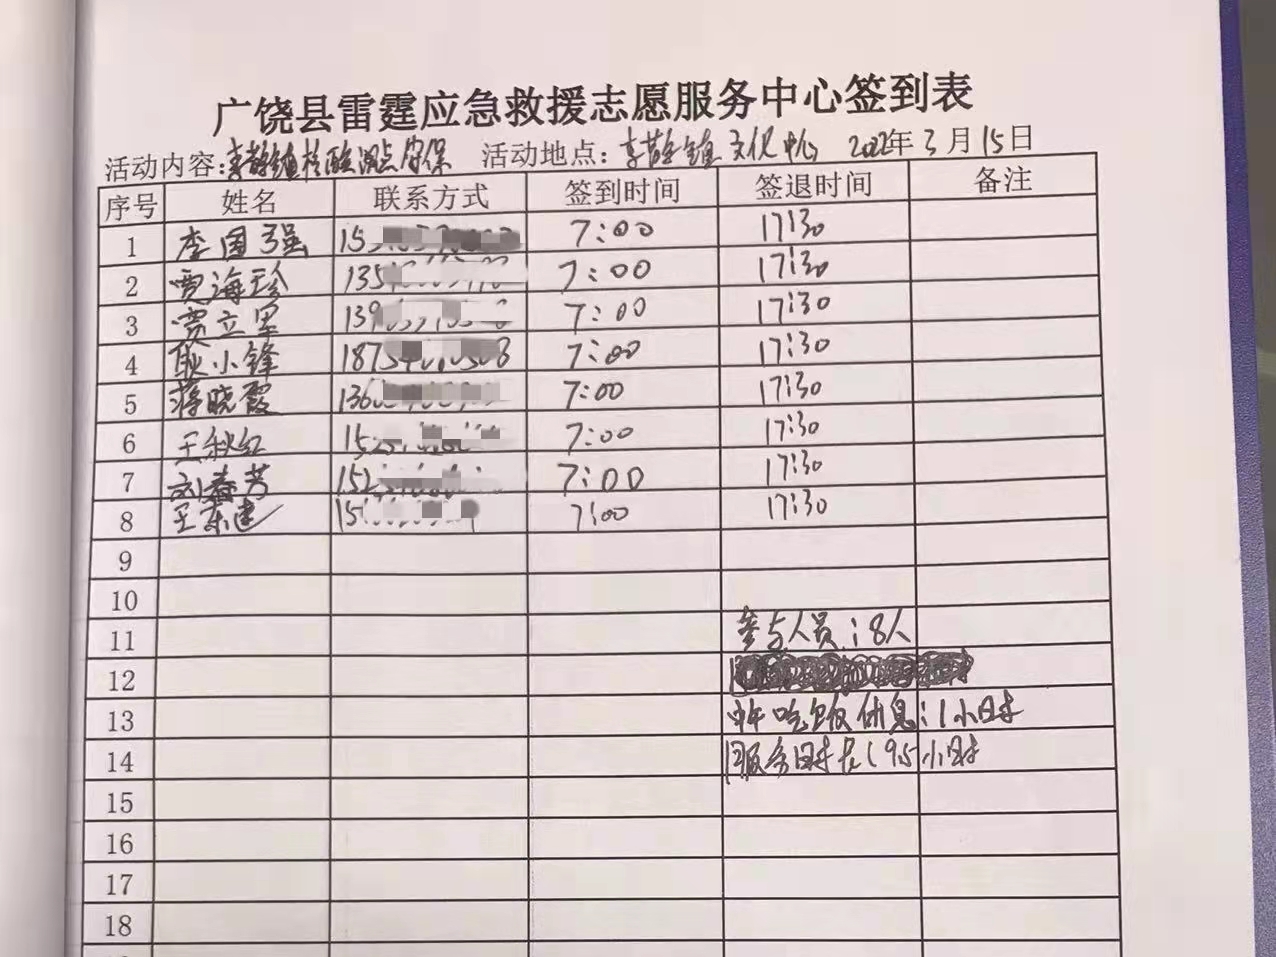 广饶县雷霆应急救援志愿服务中心签到表
活动内容:李鹊镇核酸测点安保 活动地点:李鹊镇文化中心 2022年3月15日
序号 姓名 联系方式 签到时间 签退时间 备注
1 李国强 15 7:00 17:30
2 贾海珍 135 7:00 17:30
3 贾立军 139 7:00 17:30
4 耿小锋 1875 7:00 17:30
5 蒋晓霞 136 7:00 17:30
6 王秋红 152 7:00 17:30
7 刘春芳 152 7:00 17:30
8 王东建 15 7:00 17:30
9
10
11 参与人员:8人
12
13 中午吃饭休息:1小时
14 服务时长:9.5小时
15
16
17
18